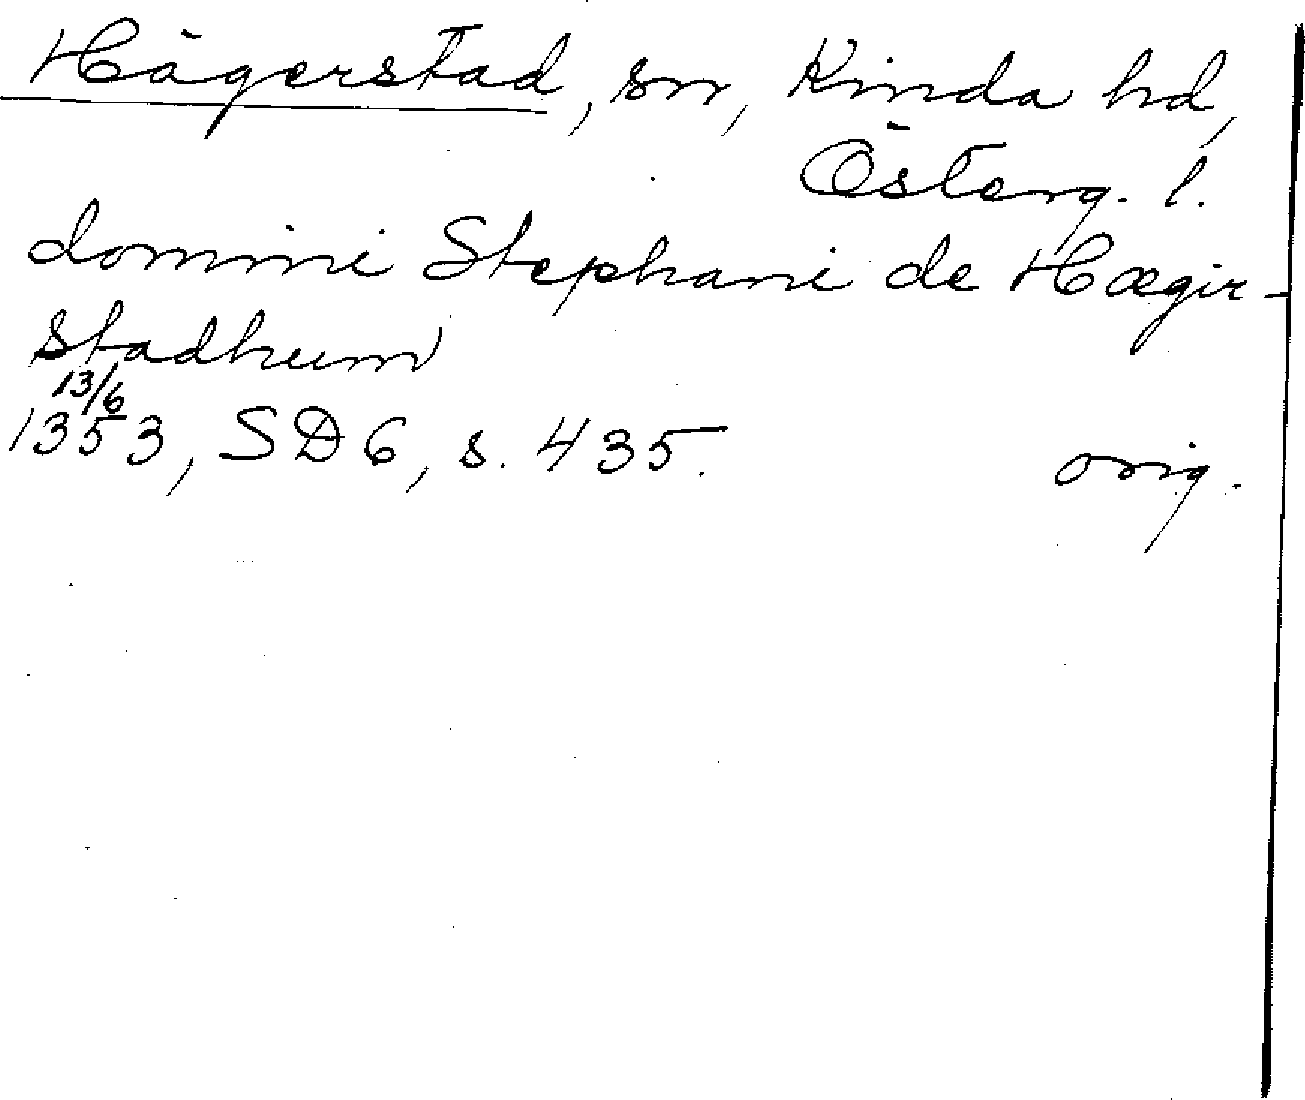 Hägerstad, sn, Kinda hd,
Österg. l.
domini Stephani de Hægir-
stadhum
13/6
1353, SD 6, s. 435. orig.